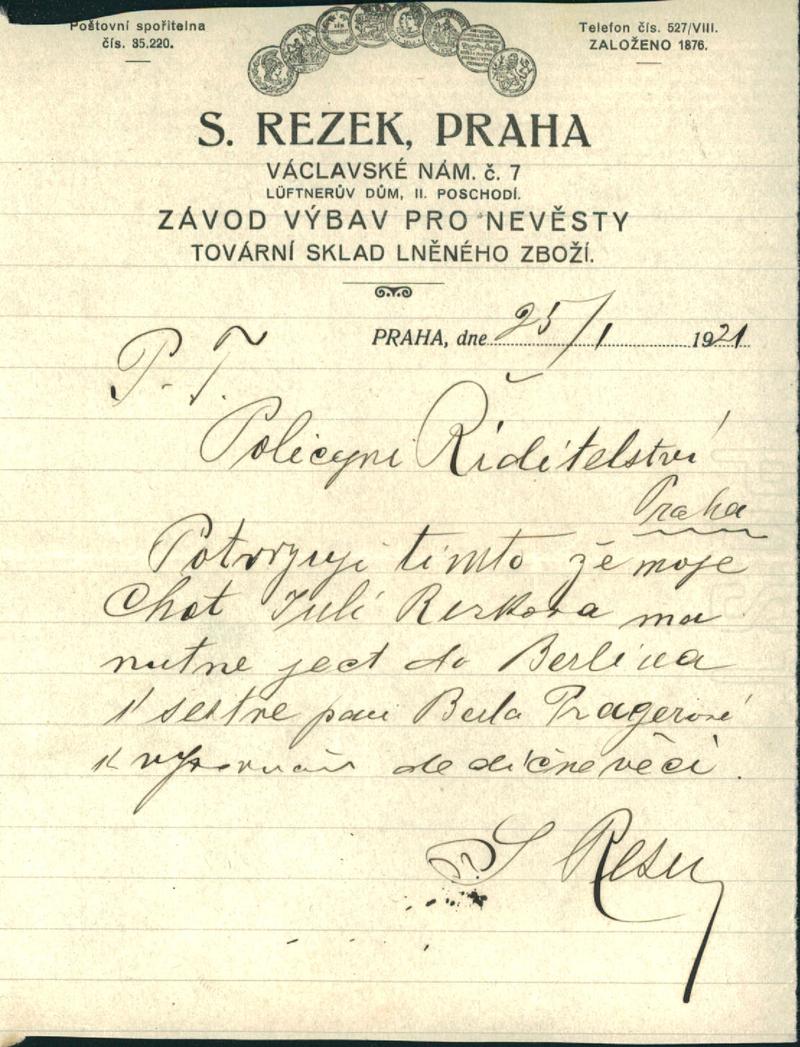 Poštovní spořitelna
čís. 35.220.
Telefon čís. 527/VIII.
ZALOŽENO 1876.
S. REZEK, PRAHA
VÁCLAVSKÉ NÁM. č. 7
LÜFTNERŮV DŮM, II. POSCHODÍ.
ZÁVOD VÝBAV PRO NEVĚSTY
TOVÁRNÍ SKLAD LNĚNÉHO ZBOŽÍ.
PRAHA, dne 25/1 1921
P. T.
Policyni Řiditelství
Praha
Potvrzuji timto že moje
Chot Juli Rezkova ma
nutne ject do Berlina
k sestre pani Berla Pragerové
k dedične věci.
S Rezek